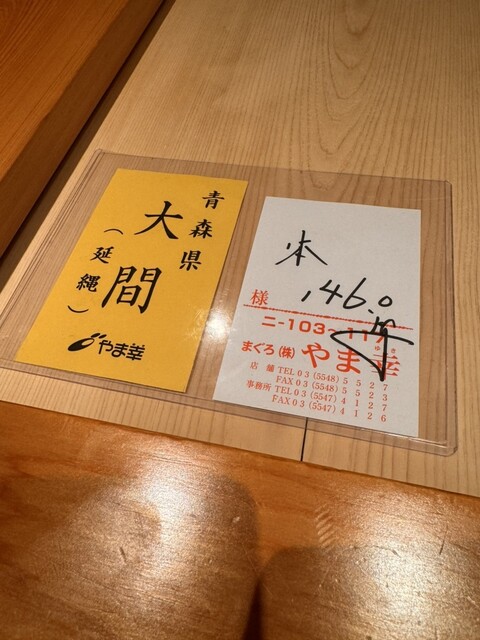 青森県
大間
(延縄)
やま幸
本
146.0
様
ニ-103~117
まぐろ(株)やま幸
ゆき
店舗 TEL 03(5548)5527
FAX 03(5548)5523
事務所 TEL 03(5547)4127
FAX 03(5547)4126